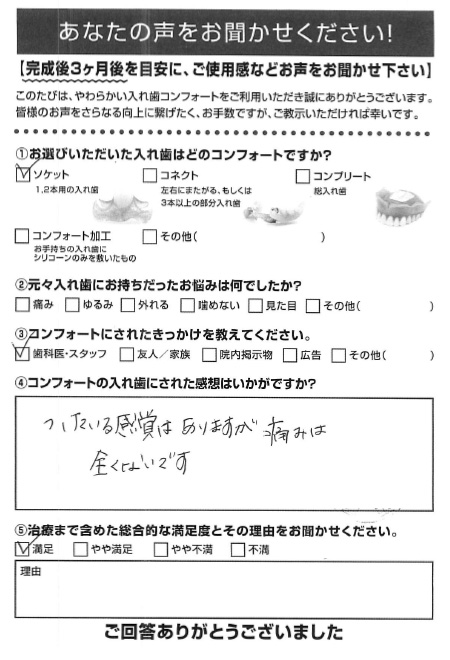 あなたの声をお聞かせください!
【完成後3ヶ月後を目安に、ご使用感などお声をお聞かせ下さい】
このたびは、やわらかい入れ歯コンフォートをご利用いただき誠にありがとうございます。
皆様のお声をさらなる向上に繋げたく、お手数ですが、ご教示いただければ幸いです。
①お選びいただいた入れ歯はどのコンフォートですか?
☑ソケット □コネクト □コンプリート
1,2本用の入れ歯 左右にまたがる、もしくは 総入れ歯
3本以上の部分入れ歯
□コンフォート加工 □その他( )
お手持ちの入れ歯に
シリコーンのみを敷いたもの
②元々入れ歯にお持ちだったお悩みは何でしたか?
□痛み □ゆるみ □外れる □噛めない □見た目 □その他( )
③コンフォートにされたきっかけを教えてください。
☑歯科医・スタッフ □友人/家族 □院内掲示物 □広告 □その他( )
④コンフォートの入れ歯にされた感想はいかがですか?
つけている感覚はありますが 痛みは
全くないです
⑤治療まで含めた総合的な満足度とその理由をお聞かせください。
☑満足 □やや満足 □やや不満 □不満
理由
ご回答ありがとうございました